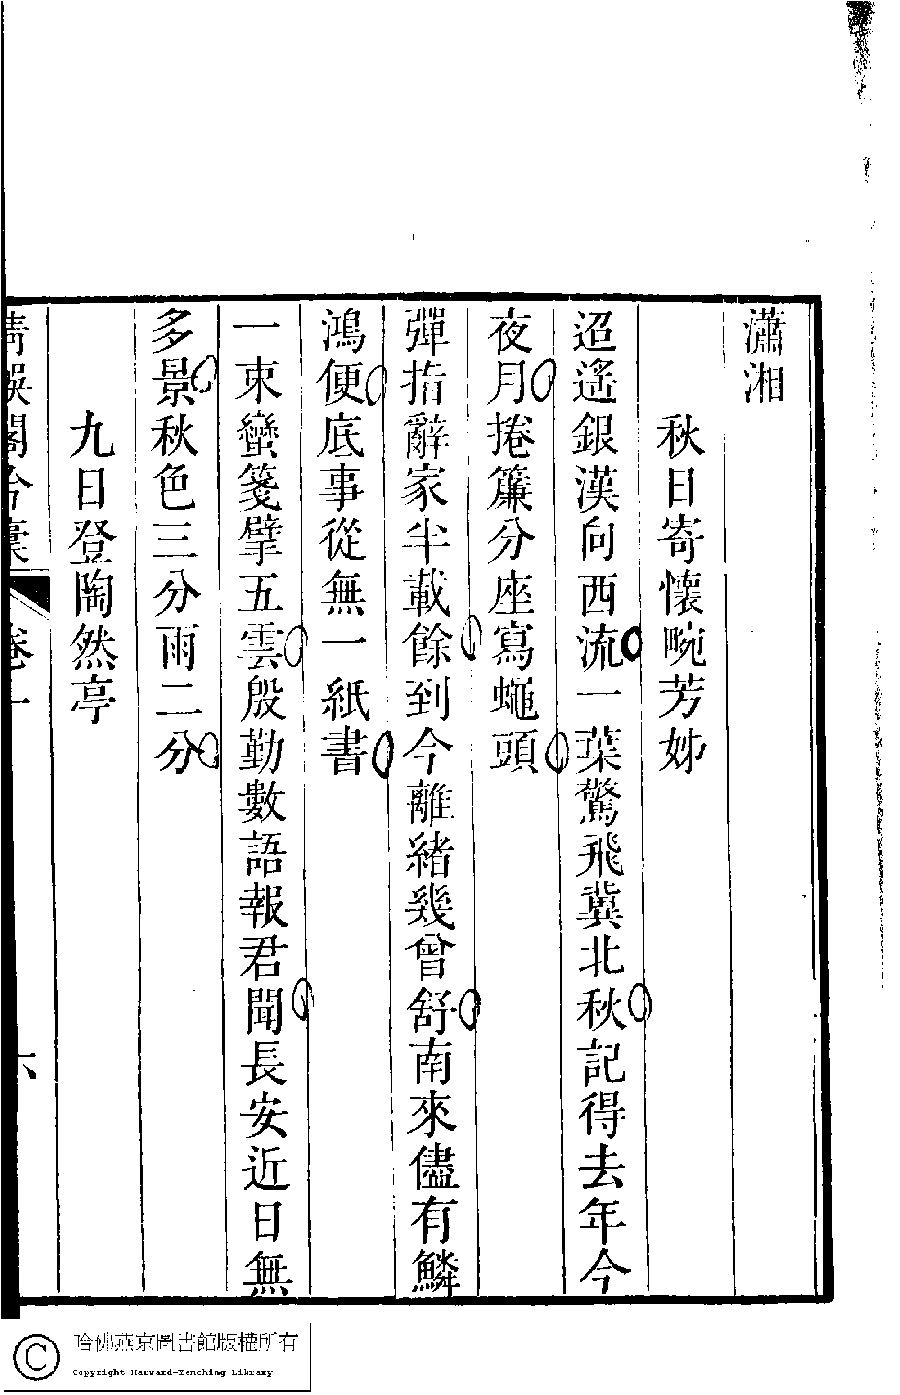 瀟湘
秋日寄懷畹芳姊
迢遙銀漢向西流一葉驚飛冀北秋記得去年今
夜月捲簾分座寫蠅頭
彈指辭家半載餘到今離緒幾曾舒南來儘有鱗
鴻便底事從無一紙書
一束蠻箋擘五雲殷勤數語報君聞長安近日無
多景秋色三分雨二分
九日登陶然亭
閣吟囊 卷一 六
哈佛燕京圖書館版權所有
Copyright Harvard-Yenching Library